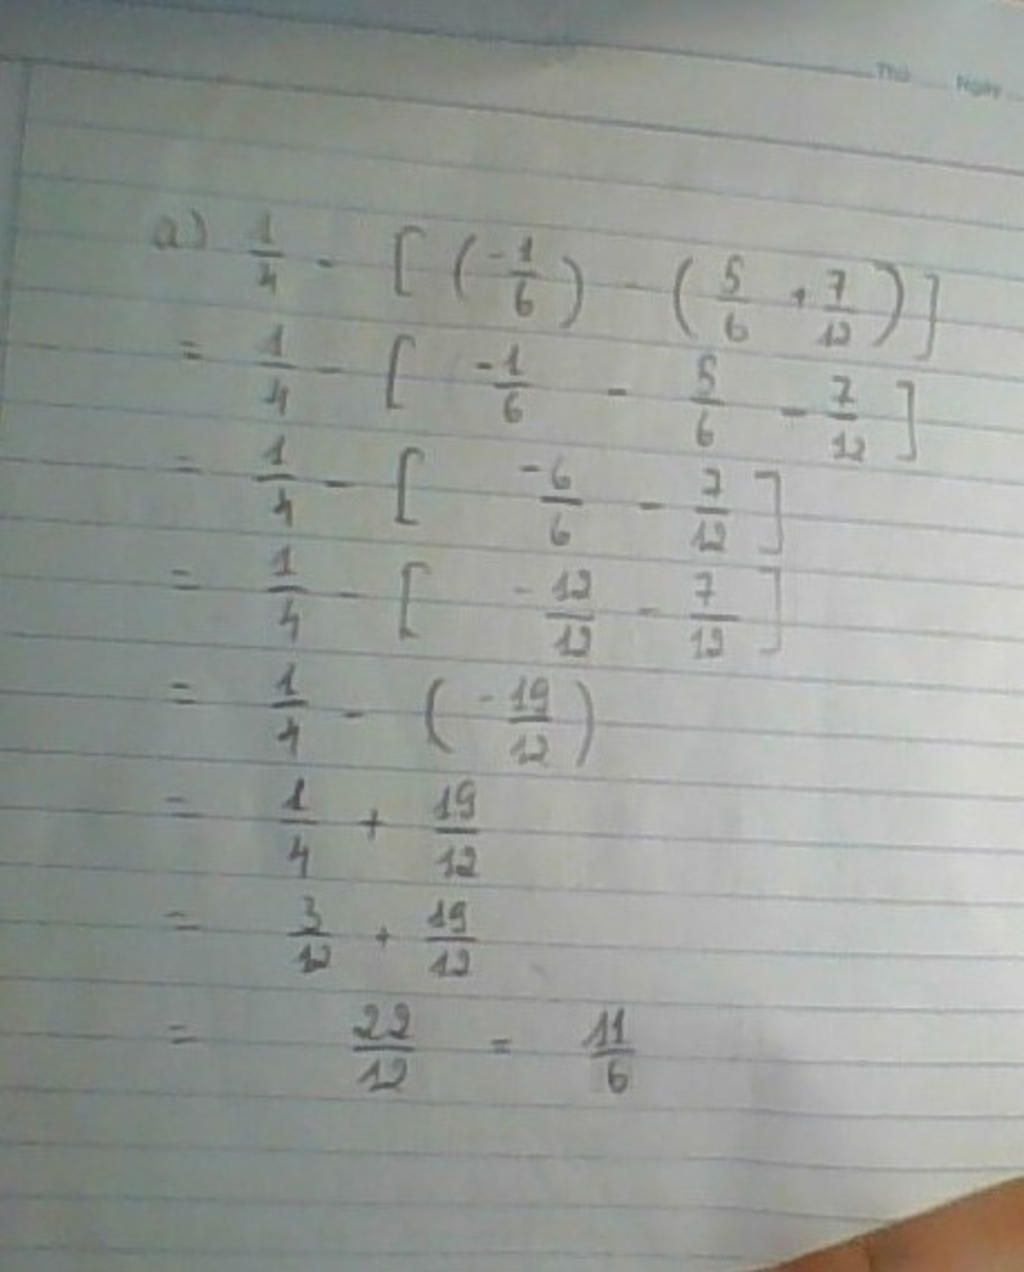 Thứ Ngày
a) 1/4 - [(-1/6) - (5/6 + 7/12)]
= 1/4 - [-1/6 - 5/6 - 7/12]
= 1/4 - [-6/6 - 7/12]
= 1/4 - [-12/12 - 7/12]
= 1/4 - (-19/12)
= 1/4 + 19/12
= 3/12 + 19/12
= 22/12 = 11/6